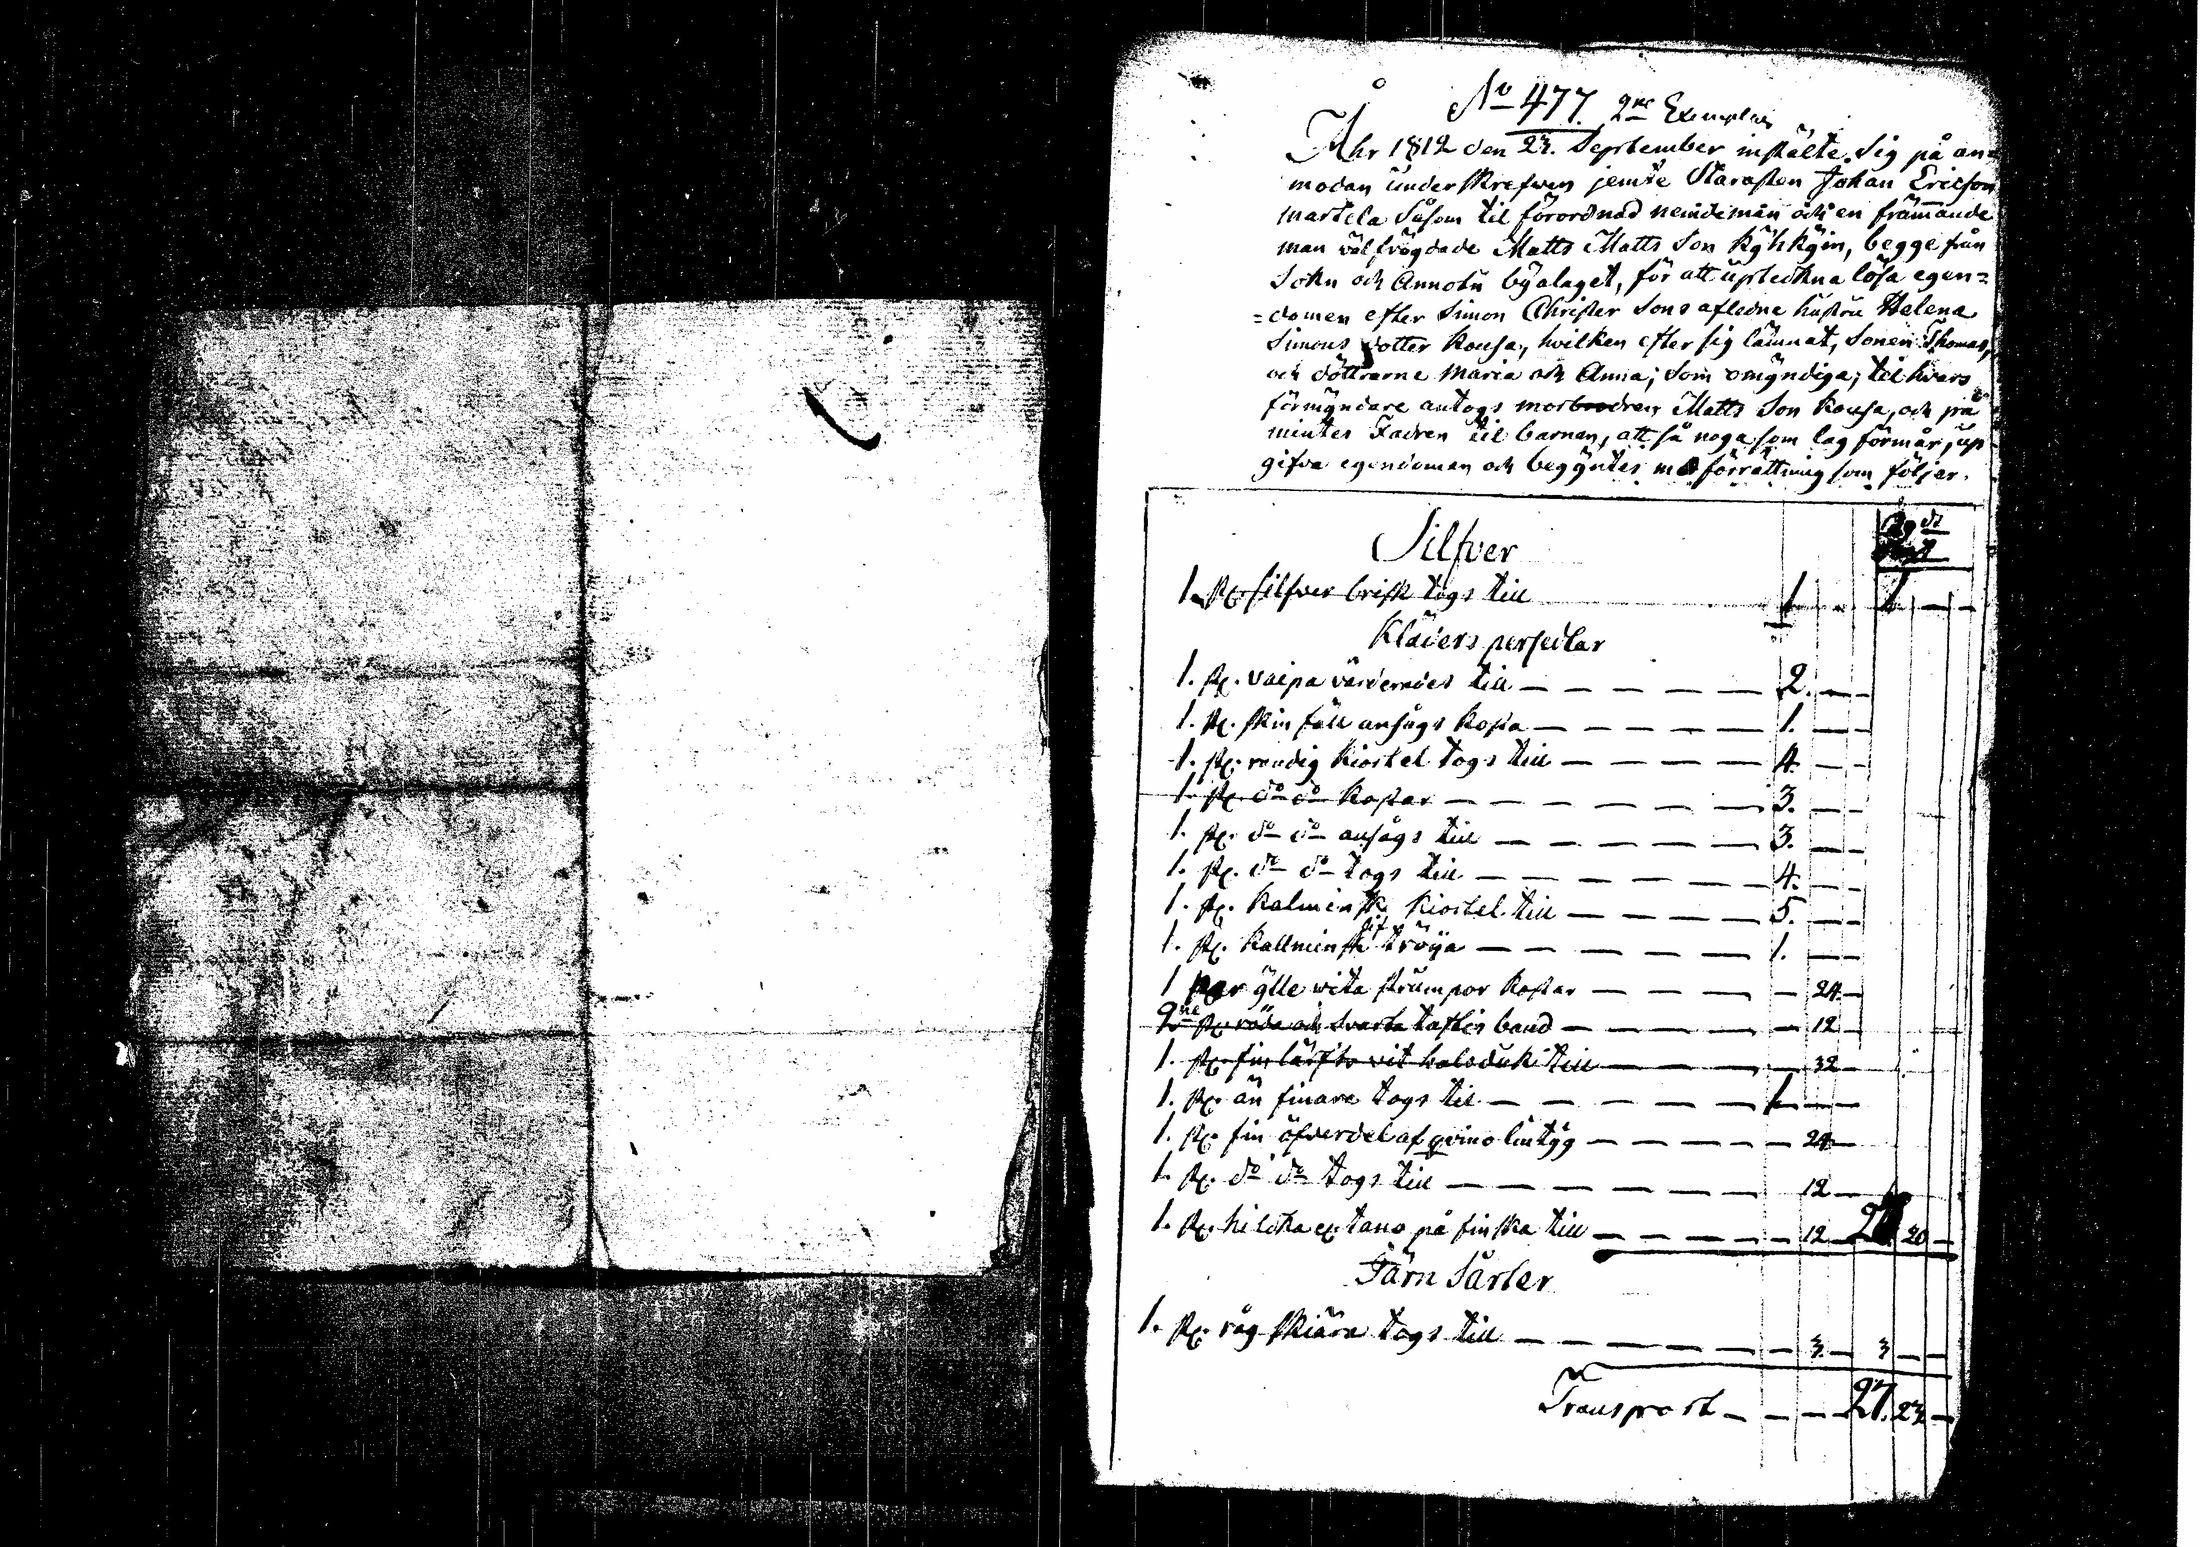 No 477. 2ne Exemplar
Åhr 1812 den 23. September instälte sig på an=
modan underskrefwen jemte Starosten Johan Ericson
Martila såsom til förordnad nemdeman och en främande
man välfrägdade Matts Matts Son Kyhkyin, begge från
och Annola byalaget, för att upteckna lösa egen=
=domen efter Simon Christer Sons afledne hustru Helena
Simons dotter Kousa, hvilken efter sig lämnat, Sonen Thomas,
och döttrarne Maria och Anna; som omyndiga; til hvars
förmyndare antogs morbrodren Matts Son Kousa, och på
mintes Fadren til barnen, att så noga som lag förmår, up
gifva egendomen och begyntes förrättning som följer.
Silfver
1. st. silfver brisk togs till — 1 — 1 — —
Kläders persedlar
1. st. vaipa värderades till — 2. — —
1. st. skin fäll ansågs kosta — 1. — —
1. st. randig kiortel togs till — 4. — —
1 st. do do kostar — 3. — —
1. st. do do ansågs till — 3. — —
1. st. do do togs till — 4. — —
1. st. kalminsk kiortel till — 5. — —
1. st. kallminsk tröya — 1. — —
1 par ylle wita strumpor kostar — 24 —
2ne st. röda och svarta tafts band — 12 —
1. st. fin lärfts vit halsduk till — 32 —
1. st. än finare togs til — 1 — —
1. st. fin öfverdel af qvins lintyg — 24 —
1. st. do do togs till — 12 —
1. st. på finska till — 12 — 20 —
Järn Sårter
1. st. råg skiära togs till — 3 — 3 — —
Transport — 27. 23 —